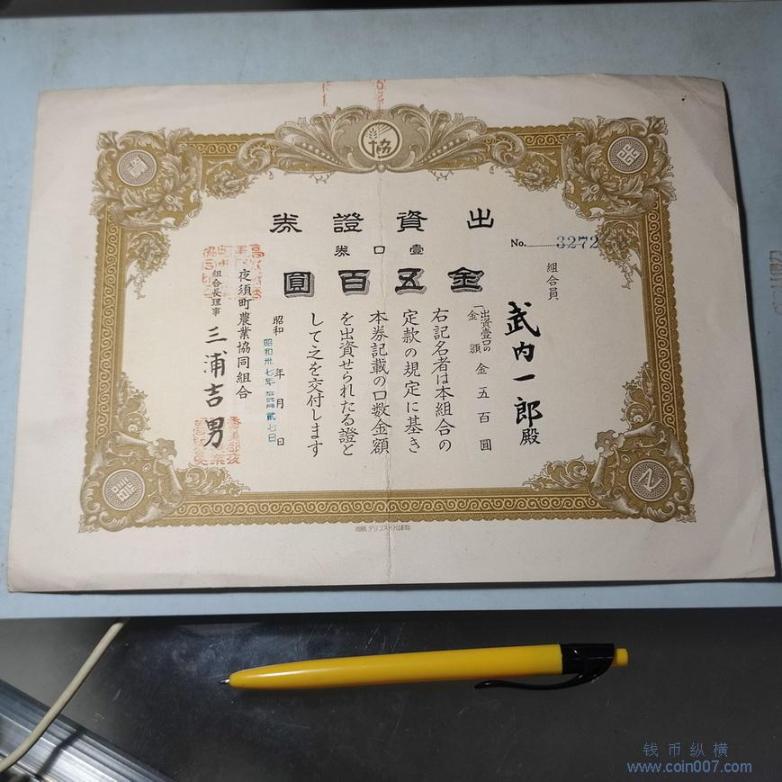 協
出資證券
壹口券
金五百圓
No. 3272
組合員
武内一郎殿
一、出資壹口の金額 金五百圓
右記名者は本組合の
定款の規定に基き
本券記載の口数金額
を出資せられたる證と
して之を交付します
昭和 年 月 日
夜須町農業協同組合
組合長理事 三浦吉男
钱币纵横
www.coin007.com